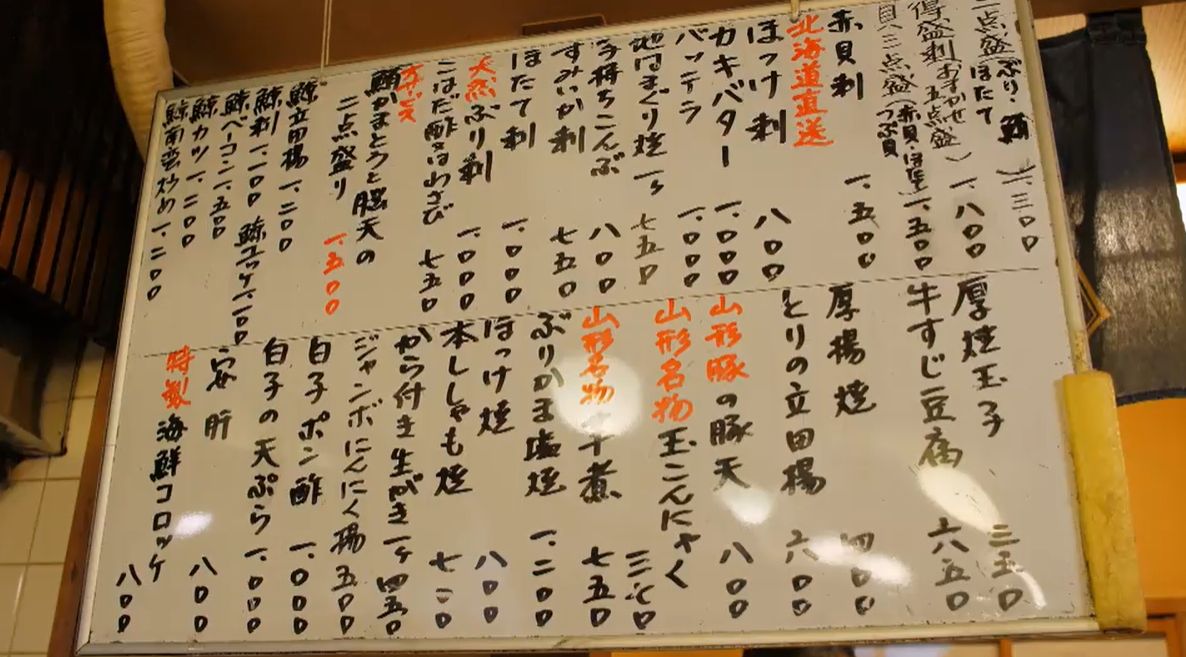 二点盛(ぶり・鮪 ほたて) 一.三〇〇
得盛刺(おまかせ五点盛) 一.八〇〇
貝三点盛(赤貝・ほたて つぶ貝) 一.五〇〇
赤貝刺 一.五〇〇
北海道直送
ほっけ刺 八〇〇
カキバター 一.〇〇〇
バッテラ 一.〇〇〇
地はまぐり焼一ヶ 七五〇
子持ちこんぶ 八〇〇
すみいか刺 七五〇
ほたて刺 一.〇〇〇
天然ぶり刺 一.〇〇〇
こはだ酢又はわさび 七五〇
鮪かまとろと脳天の
二点盛り 一.五〇〇
鯨立田揚 一.二〇〇
鯨刺 一.一〇〇
鯨ユッケ 一.一〇〇
鯨ベーコン 一.五〇〇
鯨カツ 一.二〇〇
鯨南蛮炒め 一.二〇〇
厚焼玉子 三五〇
牛すじ豆腐 六五〇
厚揚焼 四〇〇
とりの立田揚 六〇〇
山形豚の豚天 八〇〇
山形名物玉こんにゃく
山形名物芋煮 七五〇
ぶりかま塩焼 一.二〇〇
ほっけ焼 八〇〇
本ししゃも焼 七二〇
から付き生がき一ヶ 四五〇
ジャンボにんにく揚 五〇〇
白子ポン酢 一.〇〇〇
白子の天ぷら 一.〇〇〇
安肝 八〇〇
特製海鮮コロッケ 八〇〇